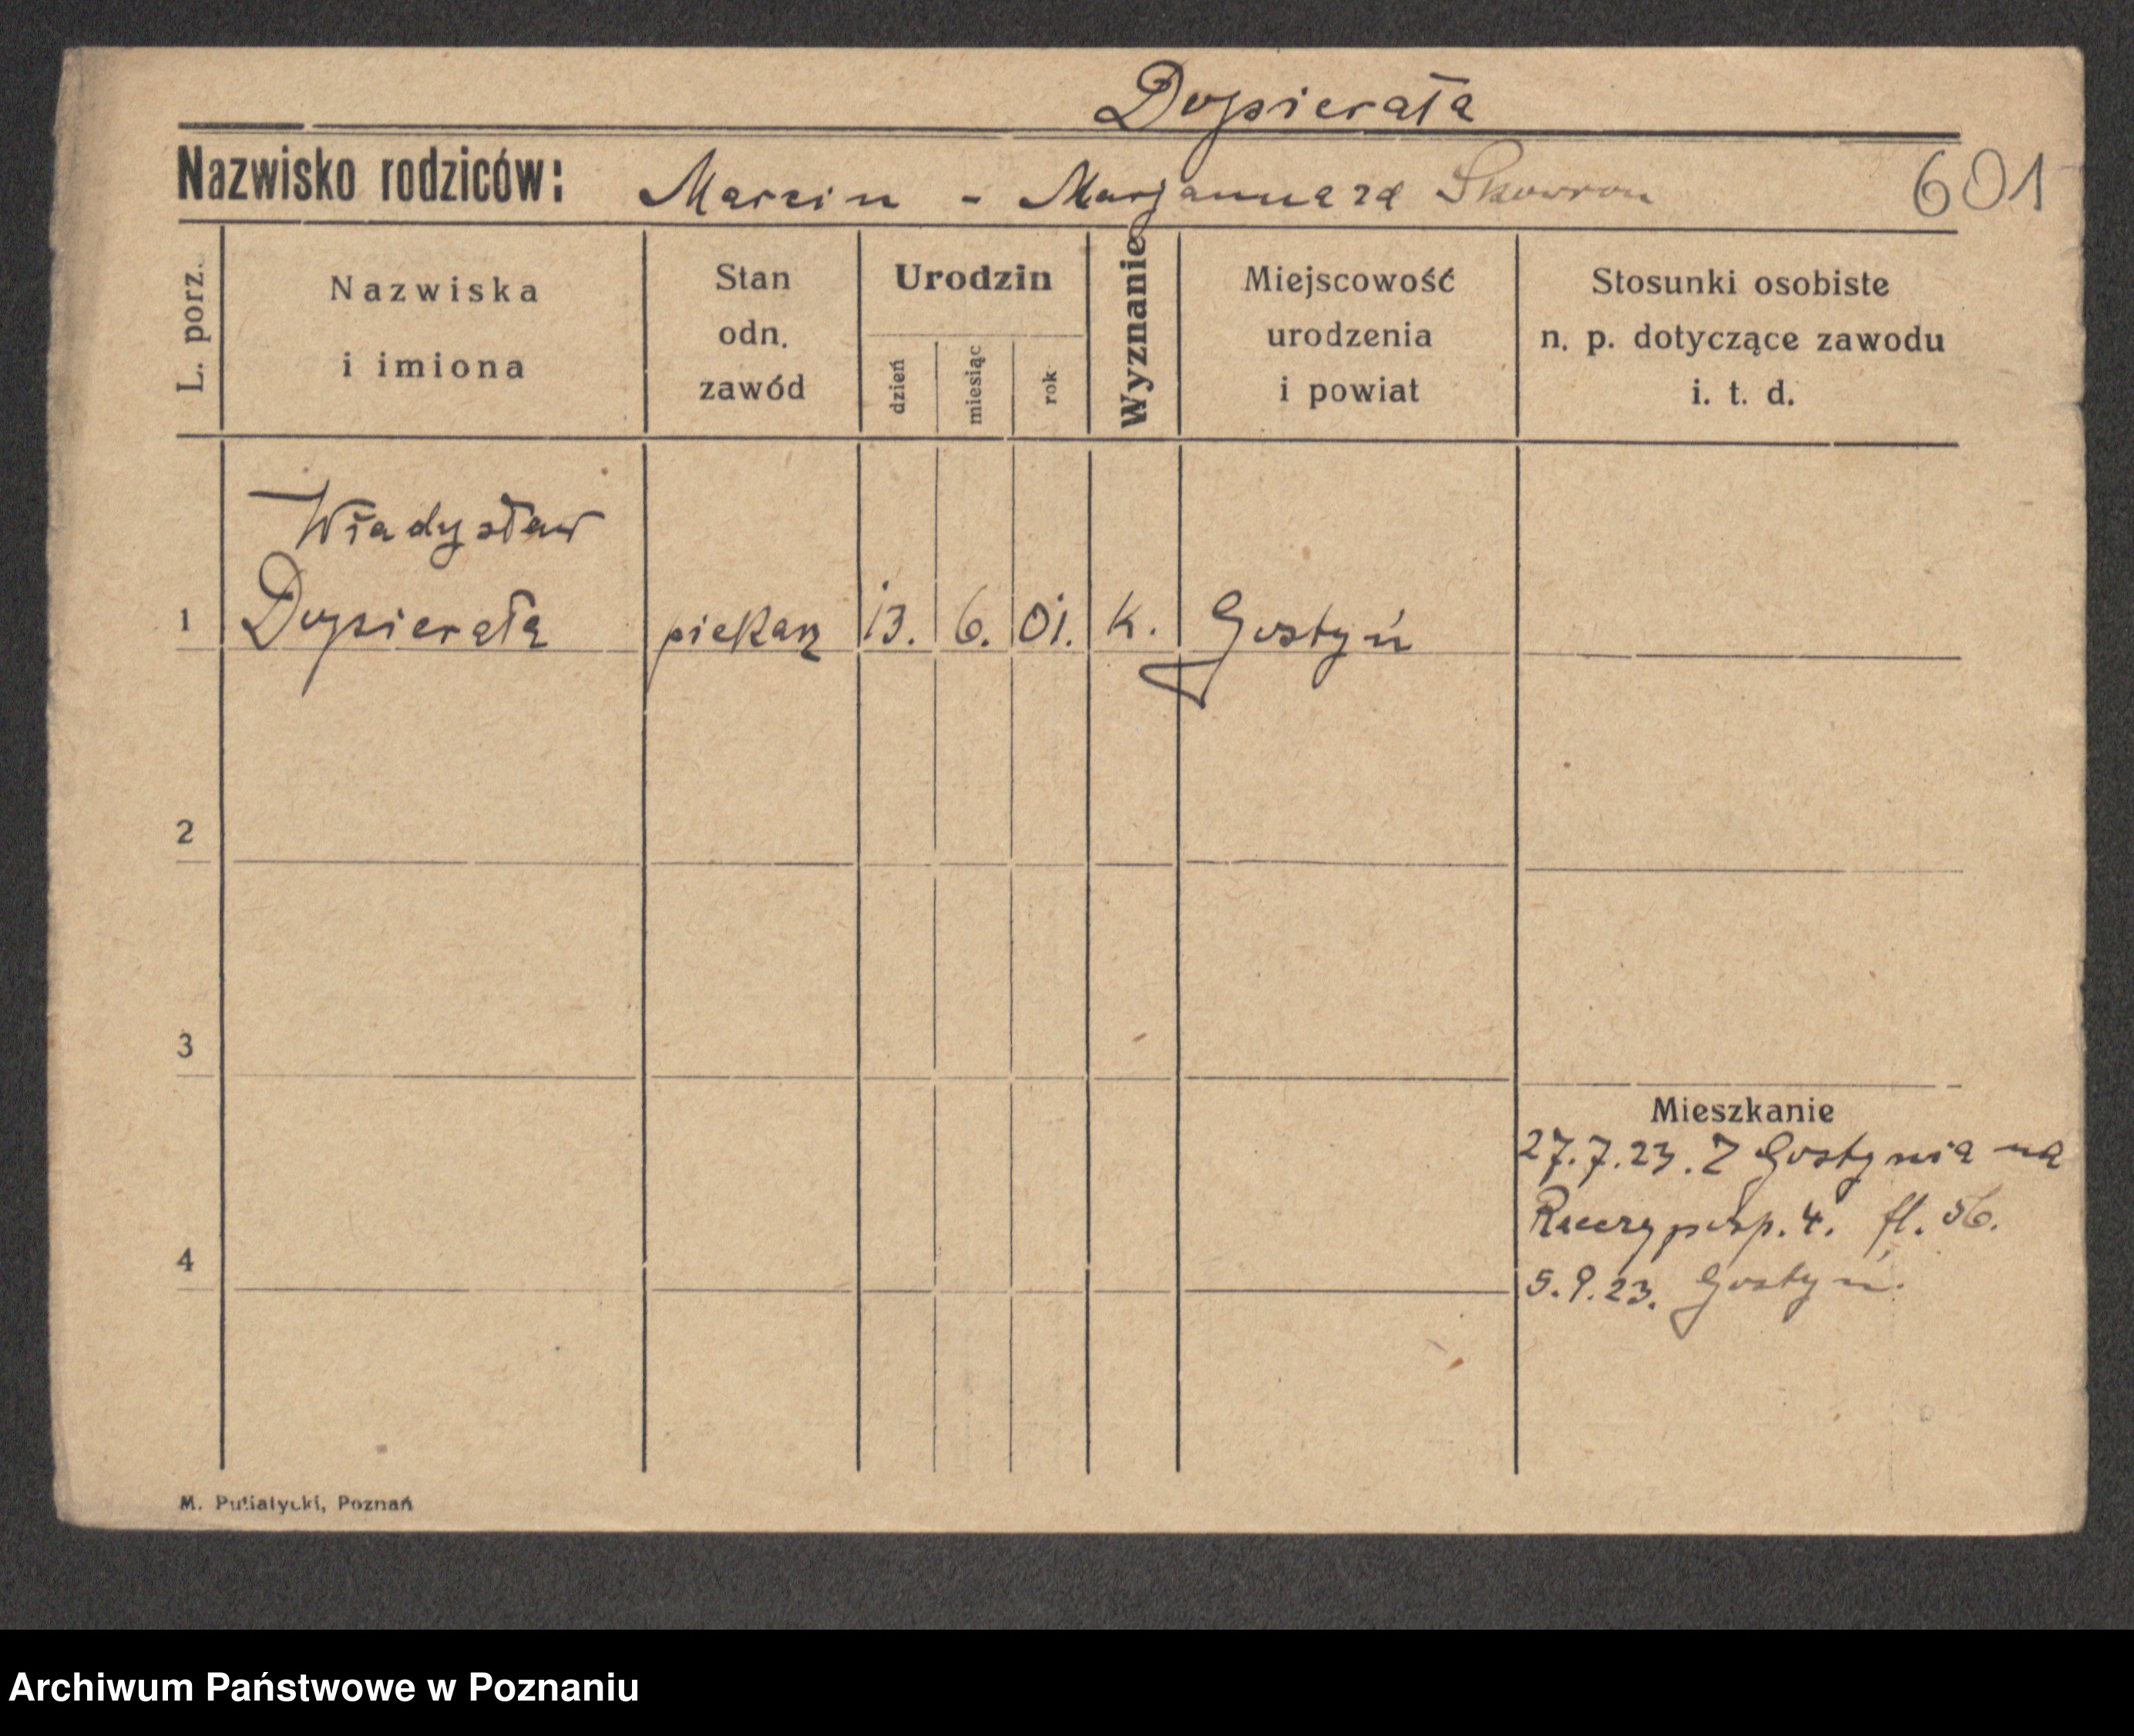 Dopierała
Nazwisko rodziców: Marcin - Marjanna zd Skowron 601
L. porz.
Nazwiska
i imiona
Stan
odn.
zawód
Urodzin
dzień
miesiąc
rok
Wyznanie
Miejscowość
urodzenia
i powiat
Stosunki osobiste
n. p. dotyczące zawodu
i. t. d.
Władysław
1 Dopierała piekarz 13. 6. 01. K. Gostyń
2
3
Mieszkanie
27.7.23. Z Gostynia na
4. fl. 56.
4
5.9.23. Gostyń.
M. Putiatycki, Poznań
Archiwum Państwowe w Poznaniu